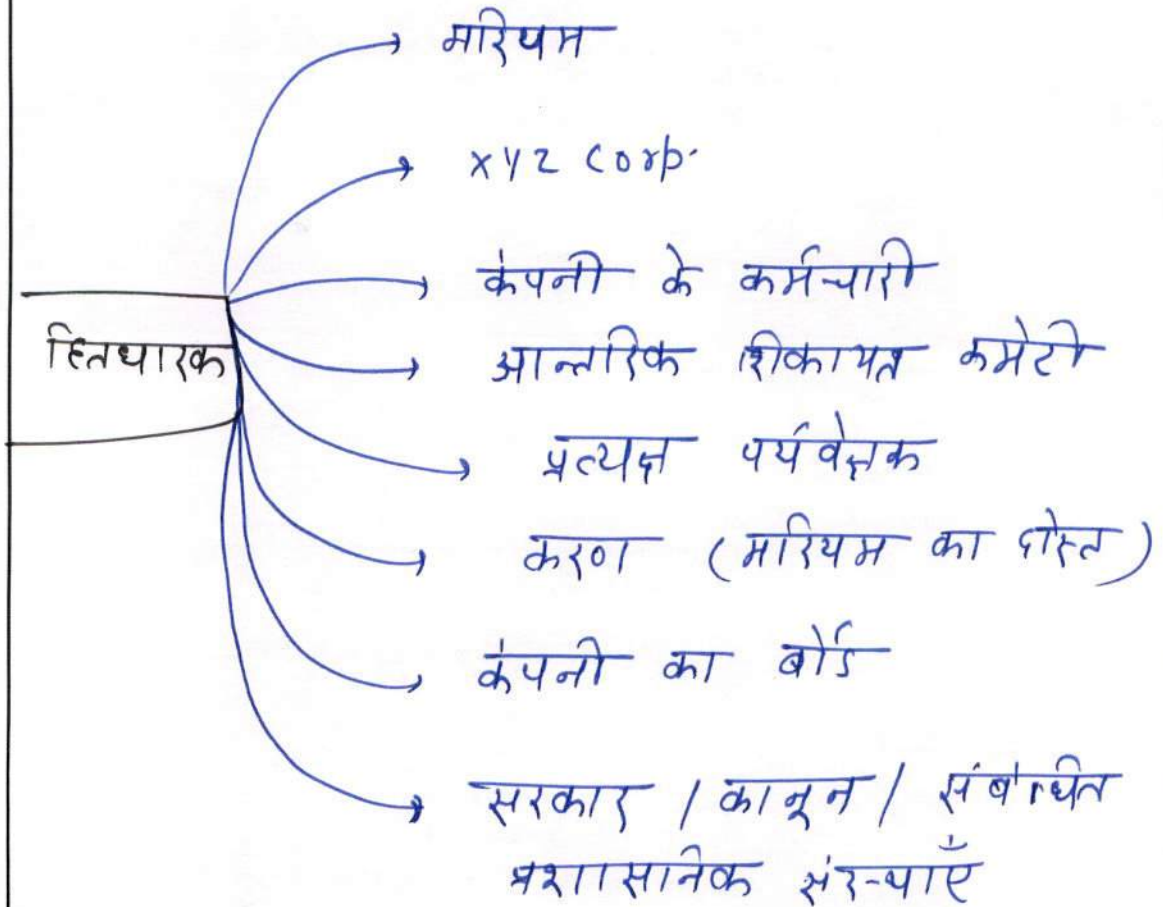 मरियम
XYZ Corp.
कंपनी के कर्मचारी
हितधारक
आन्तरिक शिकायत कमेटी
प्रत्यक्ष पर्यवेक्षक
करण (मरियम का दोस्त)
कंपनी का बोर्ड
सरकार / कानून / संबंधित
प्रशासनिक संस्थाएँ